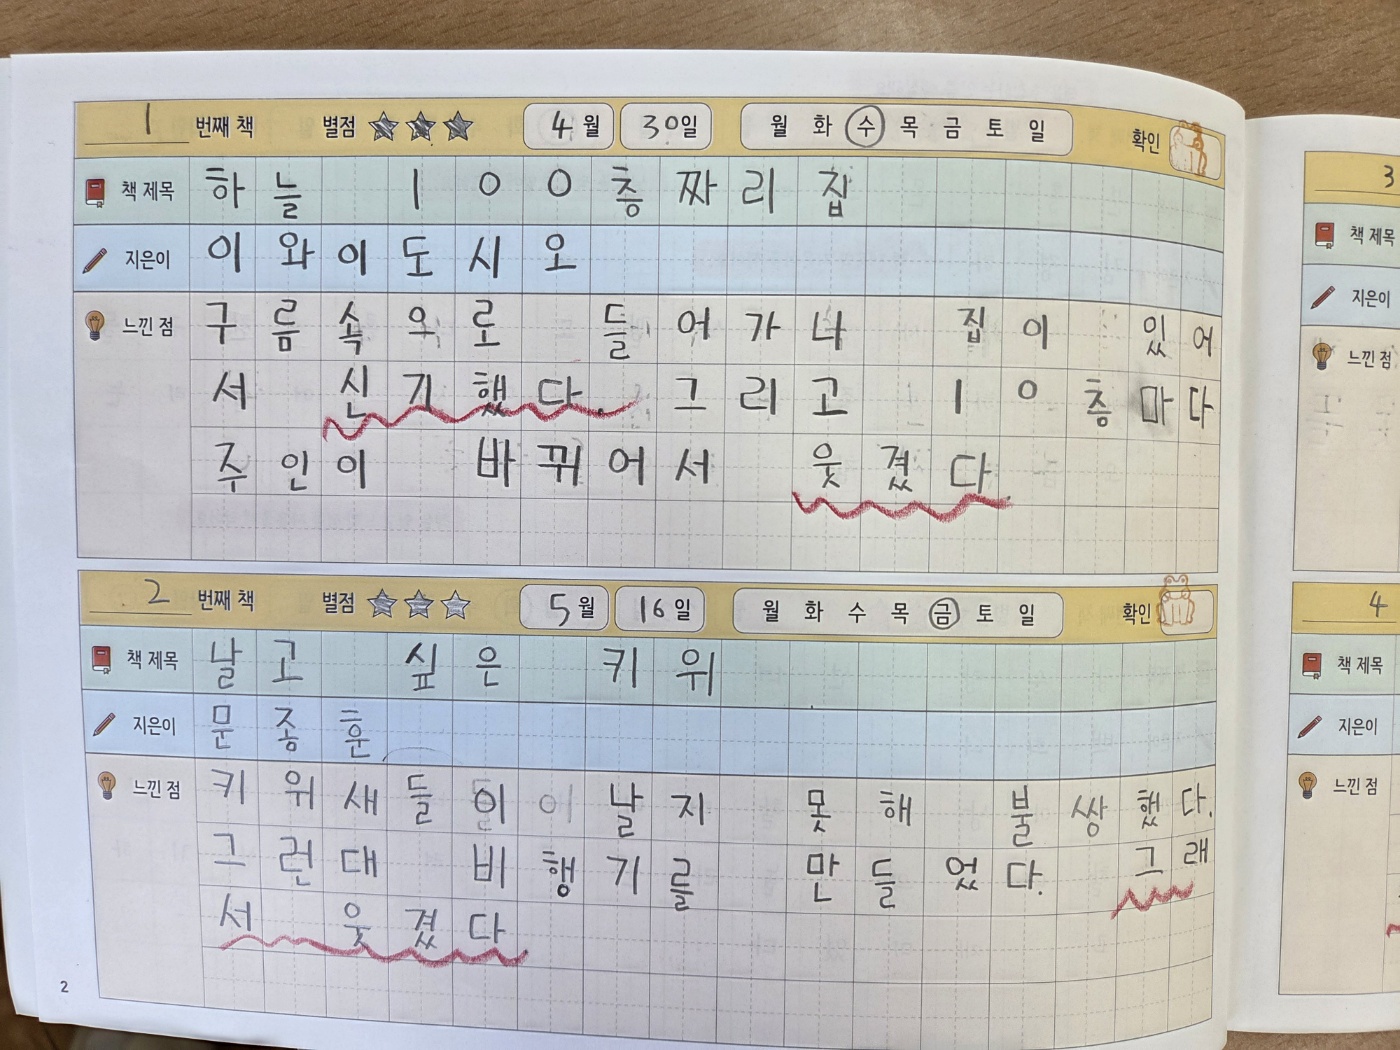 1 번째 책 별점 4 월 30 일 월 화 수 목 금 토 일 확인
책 제목 하늘 100층짜리 집
지은이 이와이도시오
느낀 점 구름속으로 들어가니 집이 있어
서 신기했다. 그리고 10층마다
주인이 바뀌어서 웃겼다
2 번째 책 별점 5 월 16 일 월 화 수 목 금 토 일 확인
책 제목 날고 싶은 키위
지은이 문종훈
느낀 점 키위새들이 날지 못해 불쌍했다.
그런대 비행기를 만들었다. 그래
서 웃겼다
2
3
책 제목
지은이
느낀 점
4
책 제목
지은이
느낀 점